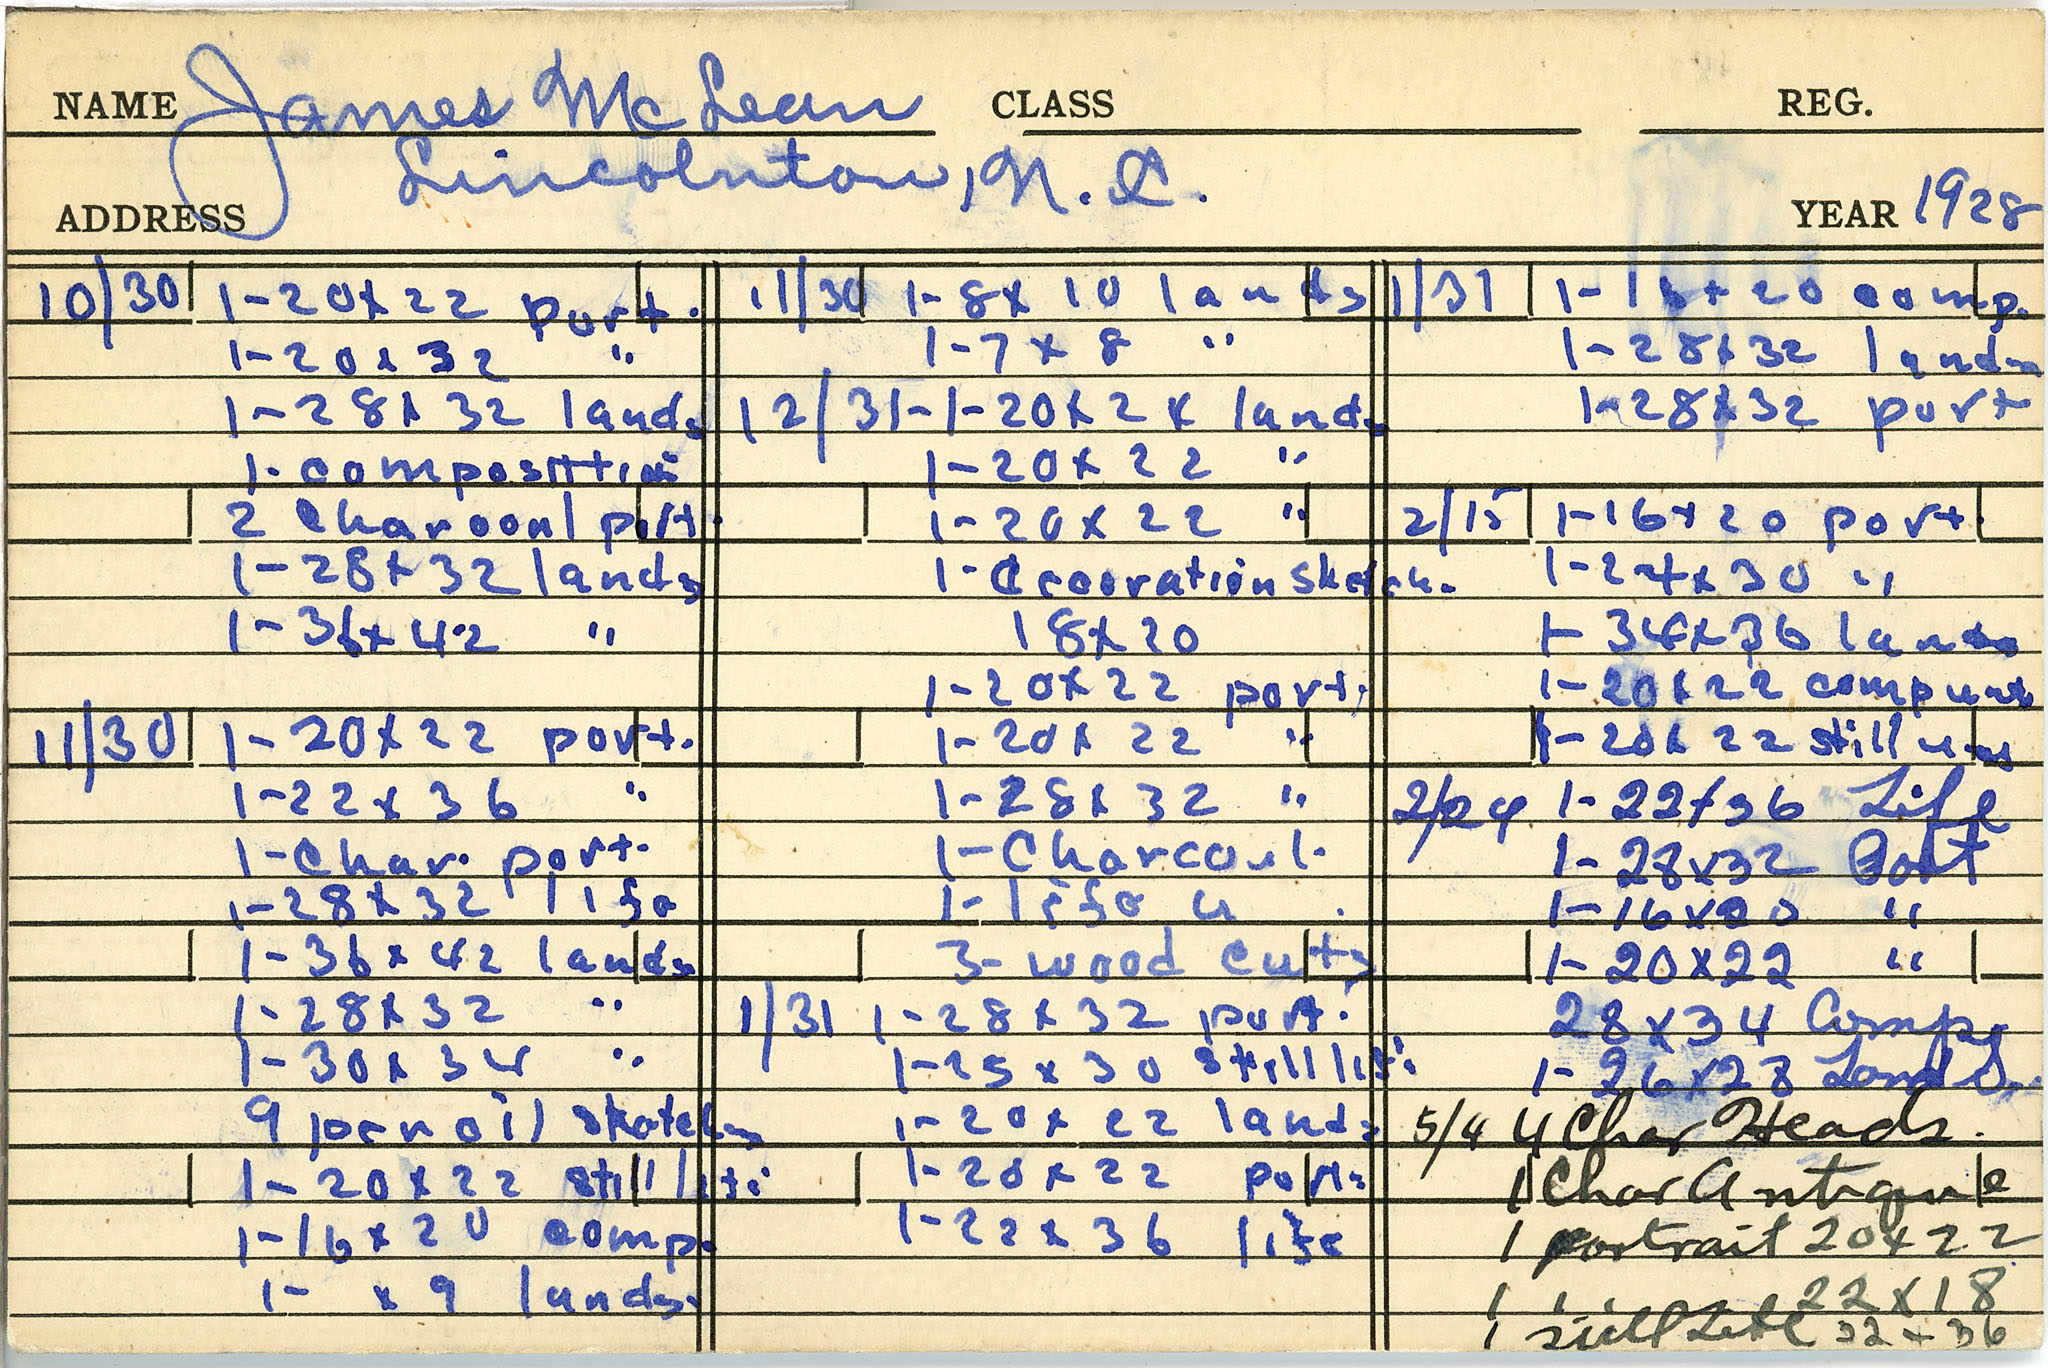 NAME James McLean CLASS REG.
Lincolnton, N.C.
ADDRESS YEAR 1928
10/30 1-20x22 port.
1-20x32 "
1-28x32 lands
1-composition
2 Charcoal port.
1-28x32 lands
1-36x42 "
11/30 1-20x22 port.
1-22x36 "
1-Char. port.
1-28x32 life
1-36x42 lands
1-28x32 "
1-30x34 "
9 pencil sketches
1-20x22 still life
1-16x20 comp.
1- x9 lands.
11/30 1-8x10 lands
1-7x8 "
12/31-1-20x2x lands
1-20x22 "
1-20x22 "
1-decoration sketch.
18x20
1-20x22 port.
1-20x22 "
1-28x32 "
1-Charcoal.
1-life
3-wood cuts
1/31 1-28x32 port.
1-25x30 still life
1-20x22 lands
1-20x22 port.
1-22x36 life
1/31 1-16x20 comp.
1-28x32 lands
1-28x32 port
2/15 1-16x20 port.
1-24x30 "
1-34x36 lands
1-20x22
1-20x22 still
2/24 1-22x36 Life
1-28x32 Port
1-16x20 "
1-20x22 "
28x34 Comp.
1-26x28 Lands.
5/4 4 Char Heads.
1 Char Antique
1 portrait 20x22
1 22x18
1 still Life 32x36